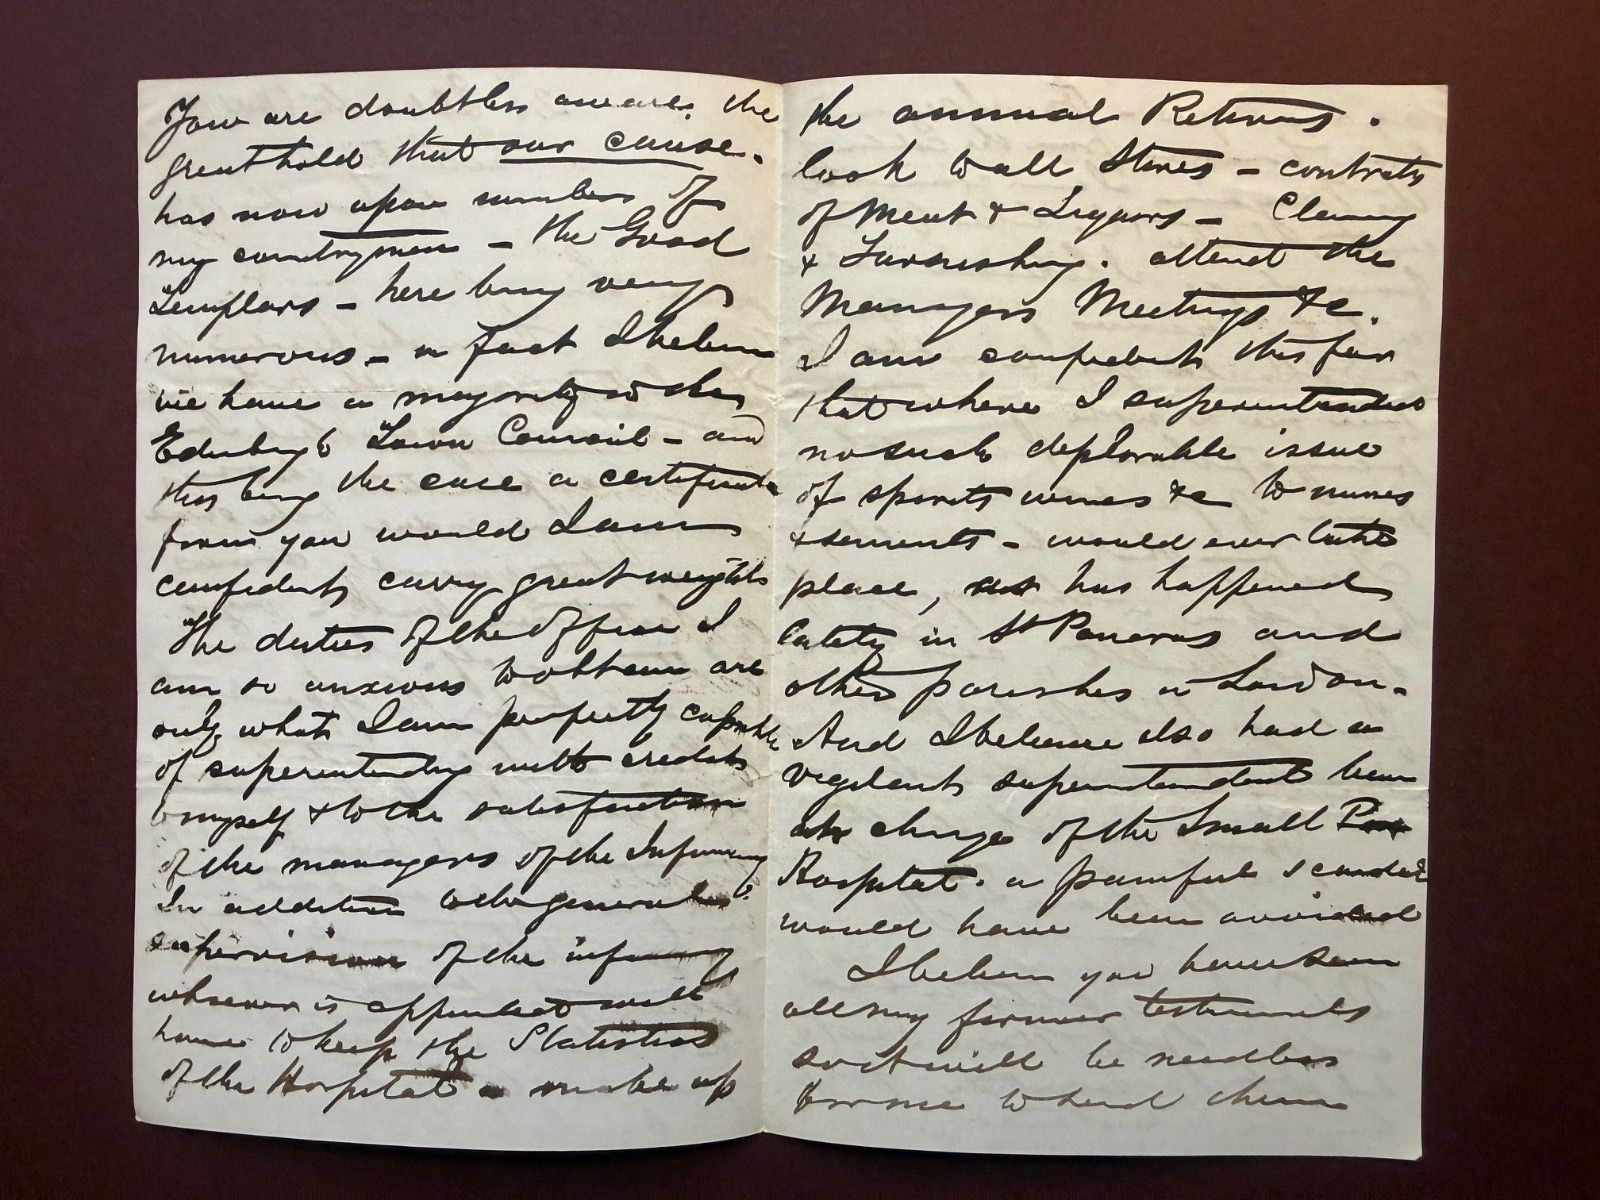 You are doubtless aware, the
great hold that our cause.
has now upon numbers of
my countrymen - the Good
Templars - here being very
numerous - in fact I believe
we have a majority in the
Edinburgh Town Council - and
this being the case a certificate
from you would I am
confident carry great weight
The duties of the office I
am so anxious to obtain are
only what I am perfectly capable
of superintending with credit
to myself & to the satisfaction
of the managers of the Infirmary
In addition to the general
supervision of the infirmary
whoever is appointed will
have to keep the Statistics
of the Hospital & make up
the annual Returns.
look to all Stores - contracts
of Meat & Liquors - Cleaning
& Furnishing. attend the
Managers Meetings &c.
I am confident this far
that where I superintended
no such deplorable issue
of spirits wines &c to nurses
& servants - would ever take
place, as has happened
lately in St Pancras and
other parishes in London.
And I believe also had a
vigilant superintendent been
in charge of the Small Pox
Hospital. a painful scandal
would have been avoided
I believe you have seen
all my former testimonials
so it will be needless
for me to send them